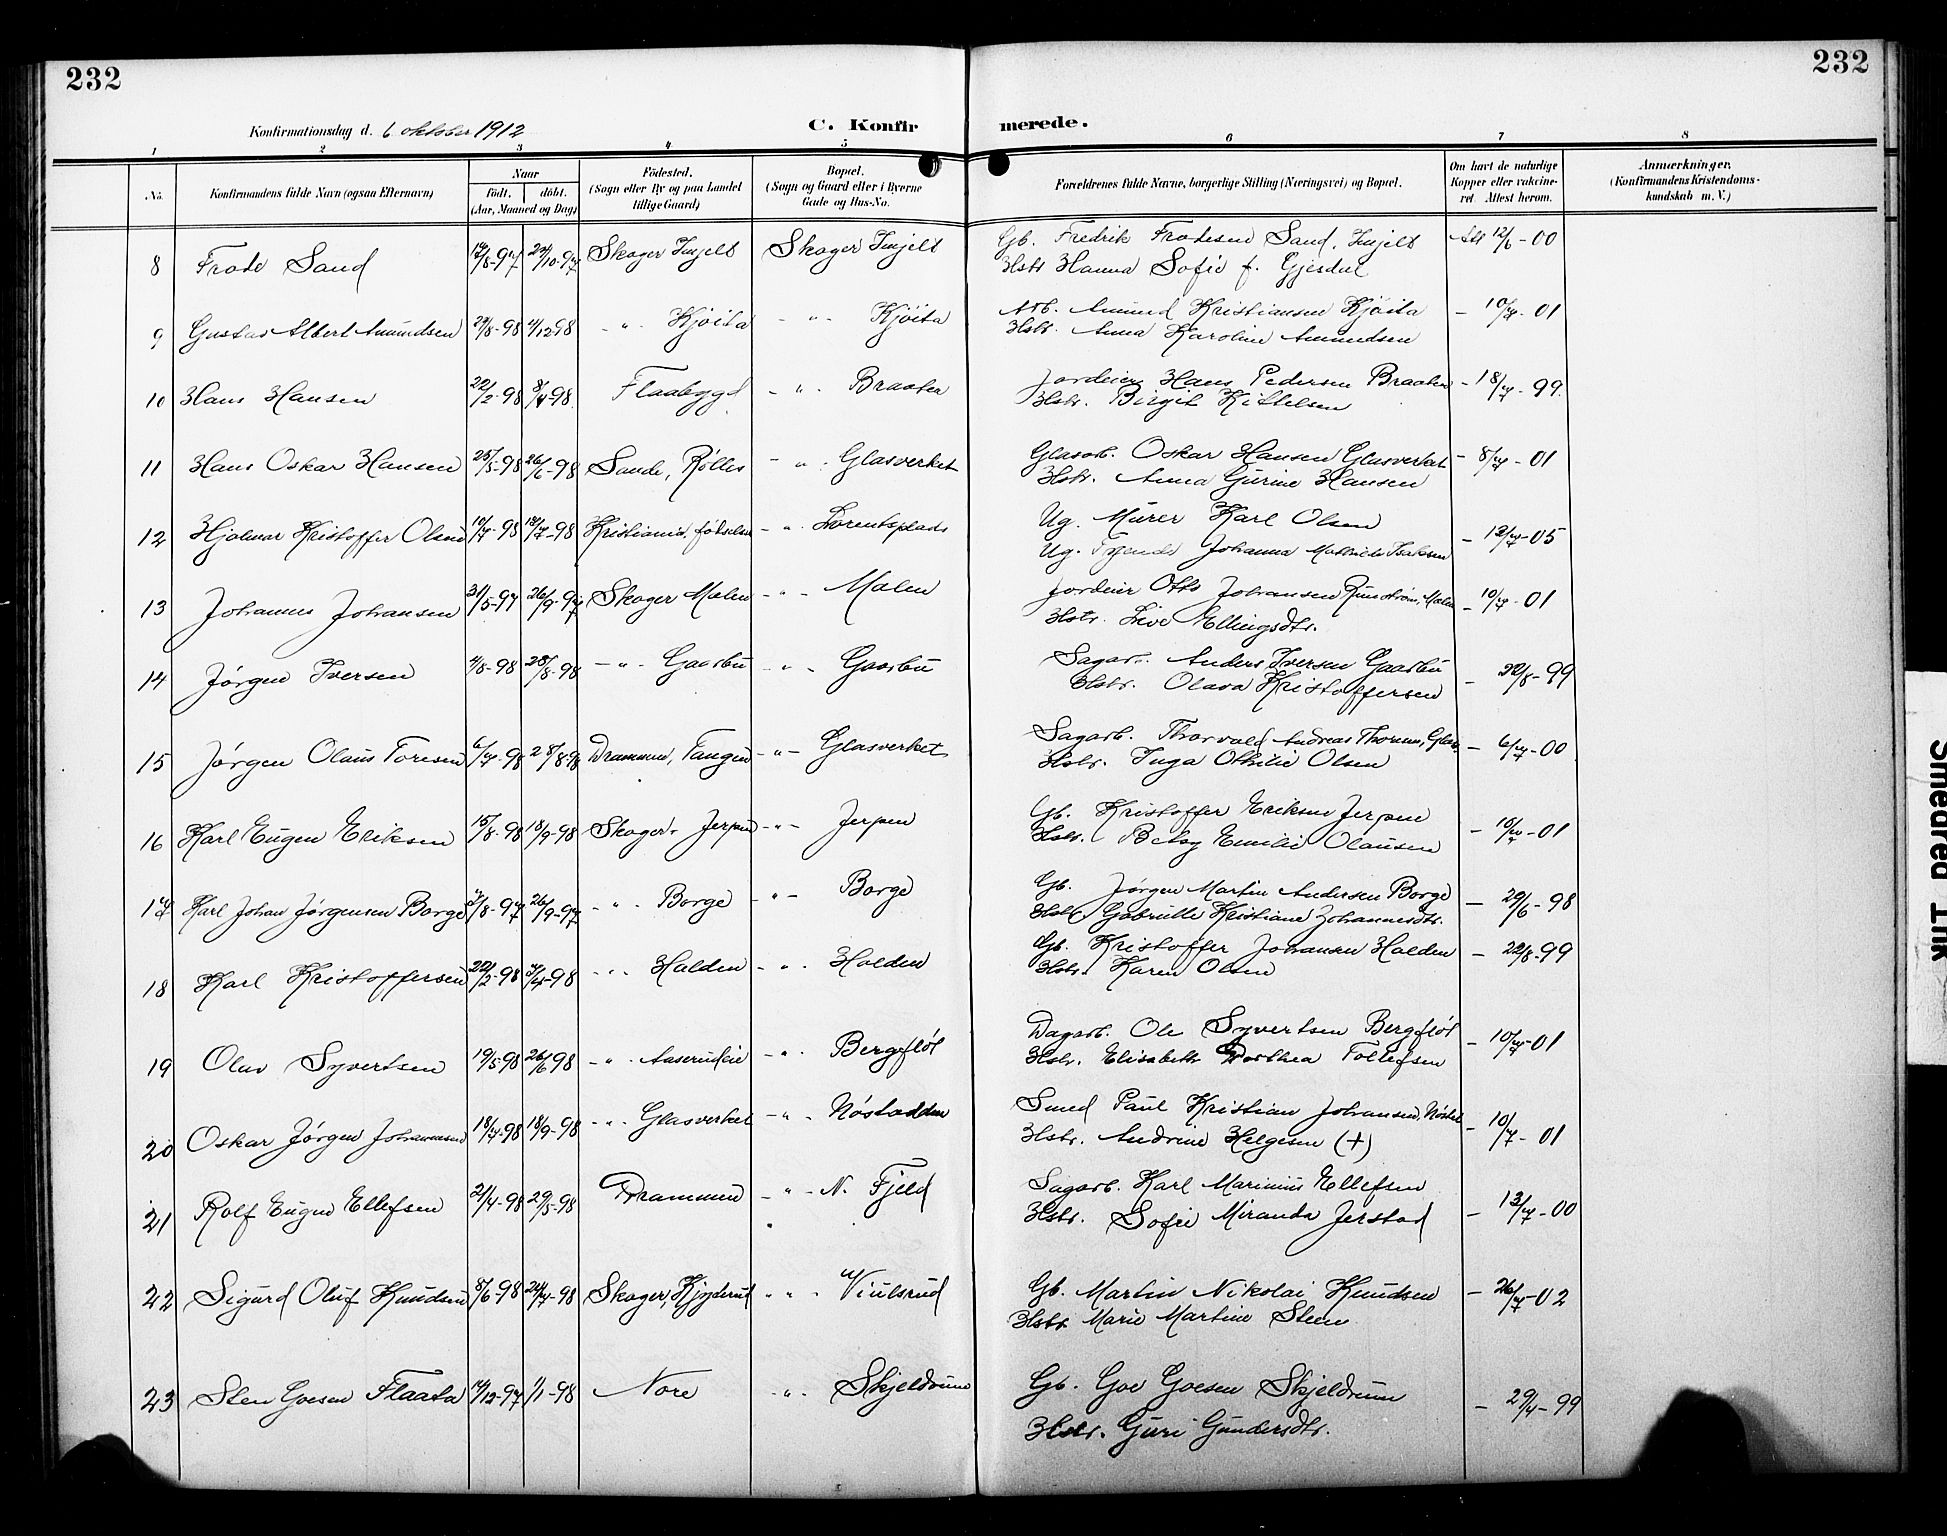 232
232
Konfirmationsdag d. 6 oktober 1912
C. Konfirmerede.
1 2 3 4 5 6 7 8
No. Konfirmandens fulde Navn (ogsaa Efternavn) Naar født. døbt. (Aar, Maaned og Dag) Fødested. (Sogn eller By og paa Landet tillige Gaard) Bopæl. (Sogn og Gaard eller i Byerne Gade og Hus-No. Forældrenes fulde Navne, borgerlige Stilling (Næringsvei) og Bopæl. Om havt de naturlige Kopper eller vaccineret. Attest herom. Anmærkninger, (Konfirmandens Kristendomskundskab m. V.)
8 Frode Sand Skoger Skoger Gb. Fredrik Frodesen Sand, Att 12/6-00
Hstr Hanna Sofie f. Gjesdal
9 Gustav Albert Amundsen 4/12 98 -"- Kjøita -"- Kjøita Arb. Amund Kristiansen Kjøita - 10/7-01
Hstr. Anna Karoline Amundsen
10 Hans Hansen 22/2-98 8/4-98 Flaabygd -"- Braaten Jordeier Hans Pedersen Braaten - 18/7-99
Hstr. Birgit Kittelsen
11 Hans Oskar Hansen 25/5-98 26/6-98 Sande, -"- Glasverket Glasarb. Oskar Hansen Glasverket - 8/7-01
Hstr. Anna Gurine Hansen
12 Hjalmar Kristoffer Olsen 10/7-98 18/7-98 Kristiania, -"- Lorentsplads Ug. Murer Karl Olsen - 12/7-05
Ug. Johanna Mathilde Isaksen
13 Johannes Johansen 31/5-97 26/9-97 Skoger Malen -"- Malen Jordeier Otto Johansen Malen - 10/7-01
Hstr. Live Ellingsdtr.
14 Jørgen Iversen 4/8-98 28/8-98 -"- Gaasbu -"- Gaasbu Sagarb. Anders Iversen Gaasbu - 22/8-99
Hstr. Olava Kristoffersen
15 Jørgen Olaus Toresen 6/7-98 28/8-98 Drammen, Tangen -"- Glasverket Sagarb. Thorvald Andreas - 6/7-00
Hstr. Inga Othilie Olsen
16 Karl Eugen Eriksen 15/8-98 18/9-98 Skoger, Jerpen -"- Jerpen Gb. Kristoffer Eriksen Jerpen - 10/7-01
Hstr. Betsy Emilie Olausen
17 Karl Johan Jørgensen Borge 26/9-97 -"- Borge -"- Borge Gb. Jørgen Martin Andersen Borge - 29/6-98
Hstr. Gabrielle Kristiane Johannesdtr.
18 Karl Kristoffersen 22/2-98 3/4-98 -"- Halden -"- Halden Gb. Kristoffer Johansen Halden - 22/8-99
Hstr. Karen Olsen
19 Olav Syvertsen 19/5-98 26/6 98 -"- Aaserudeie -"- Bergfløt Dagarb. Ole Syvertsen Bergfløt - 10/7-01
Hstr. Elisabeth Dorthea Tollefsen
20 Oskar Jørgen Johannesen 18/7-98 18/9-98 -"- Glasverket -"- Nøstodden Smed Paul Kristian Johansen, - 10/7-01
Hstr. Andrine Helgesen (+)
21 Rolf Eugen Ellefsen 21/4-98 29/5-98 Drammen -"- N. Fjeld Sagarb. Karl Marinius Ellefsen - 13/7-00
Hstr. Sofie Miranda Jerstad
22 Sigurd Oluf Knudsen 8/6-98 24/7-98 Skoger, -"- Viulsrud Gb. Martin Nikolai Knudsen - 26/7-02
Hstr. Marie Martine Steen
23 Sten Goesen Flaata 14/12-97 1/1-98 Nore -"- Skjeldrum Gb. Goe Goesen Skjeldrum - 29/4-99
Hstr. Guri Gundersdtr.
Smeared Ink